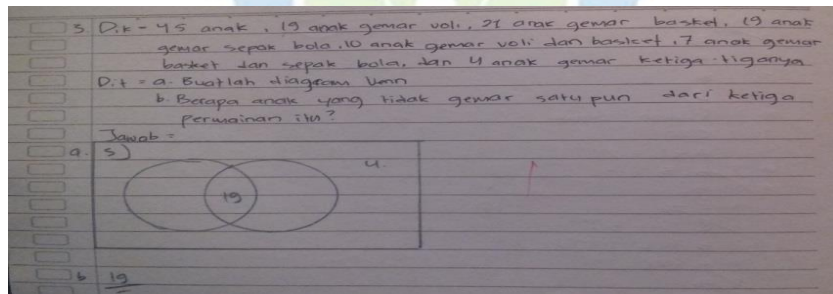 3 D.k - 45 anak, 19 anak gemar voli, 21 anak gemar basket, 19 anak
gemar sepak bola, 10 anak gemar voli dan basket, 7 anak gemar
basket dan sepak bola, dan 4 anak gemar ketiga-tiganya
D.t = a. Buatlah diagram Venn
b. Berapa anak yang tidak gemar satu pun dari ketiga
Permainan itu?
Jawab =
a. S)
4.
19
b 19